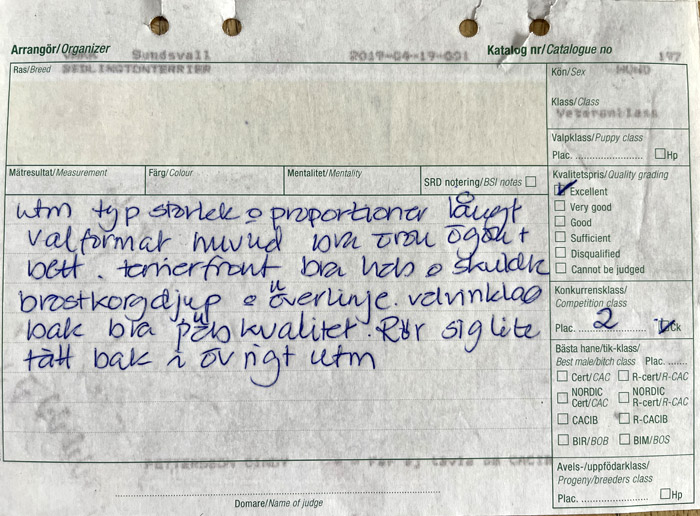 Arrangör/Organizer
Sundsvall 2019-04-19-001
Katalog nr/Catalogue no 197
Ras/Breed BEDLINGTONTERRIER
Kön/Sex HUND
Klass/Class
Veteranklass
Valpklass/Puppy class
Plac. Hp
Mätresultat/Measurement Färg/Colour Mentalitet/Mentality SRD notering/BSI notes
Kvalitetspris/Quality grading
Excellent
Very good
Good
Sufficient
Disqualified
Cannot be judged
utm typ storlek o proportioner långt
välformat huvud bra öron ögon +
bett. terrierfront bra hals o skuldra
bröstkorgdjup o överlinje. välvinklad
bak bra päls kvalitet. Rör sig lite
tätt bak i övrigt utm
Konkurrensklass/
Competition class
Plac. 2 Ck
Bästa hane/tik-klass/
Best male/bitch class Plac.
Cert/CAC R-cert/R-CAC
NORDIC Cert/CAC NORDIC R-cert/R-CAC
CACIB R-CACIB
BIR/BOB BIM/BOS
Avels-/uppfödarklass/
Progeny/breeders class
Plac. Hp
Domare/Name of judge